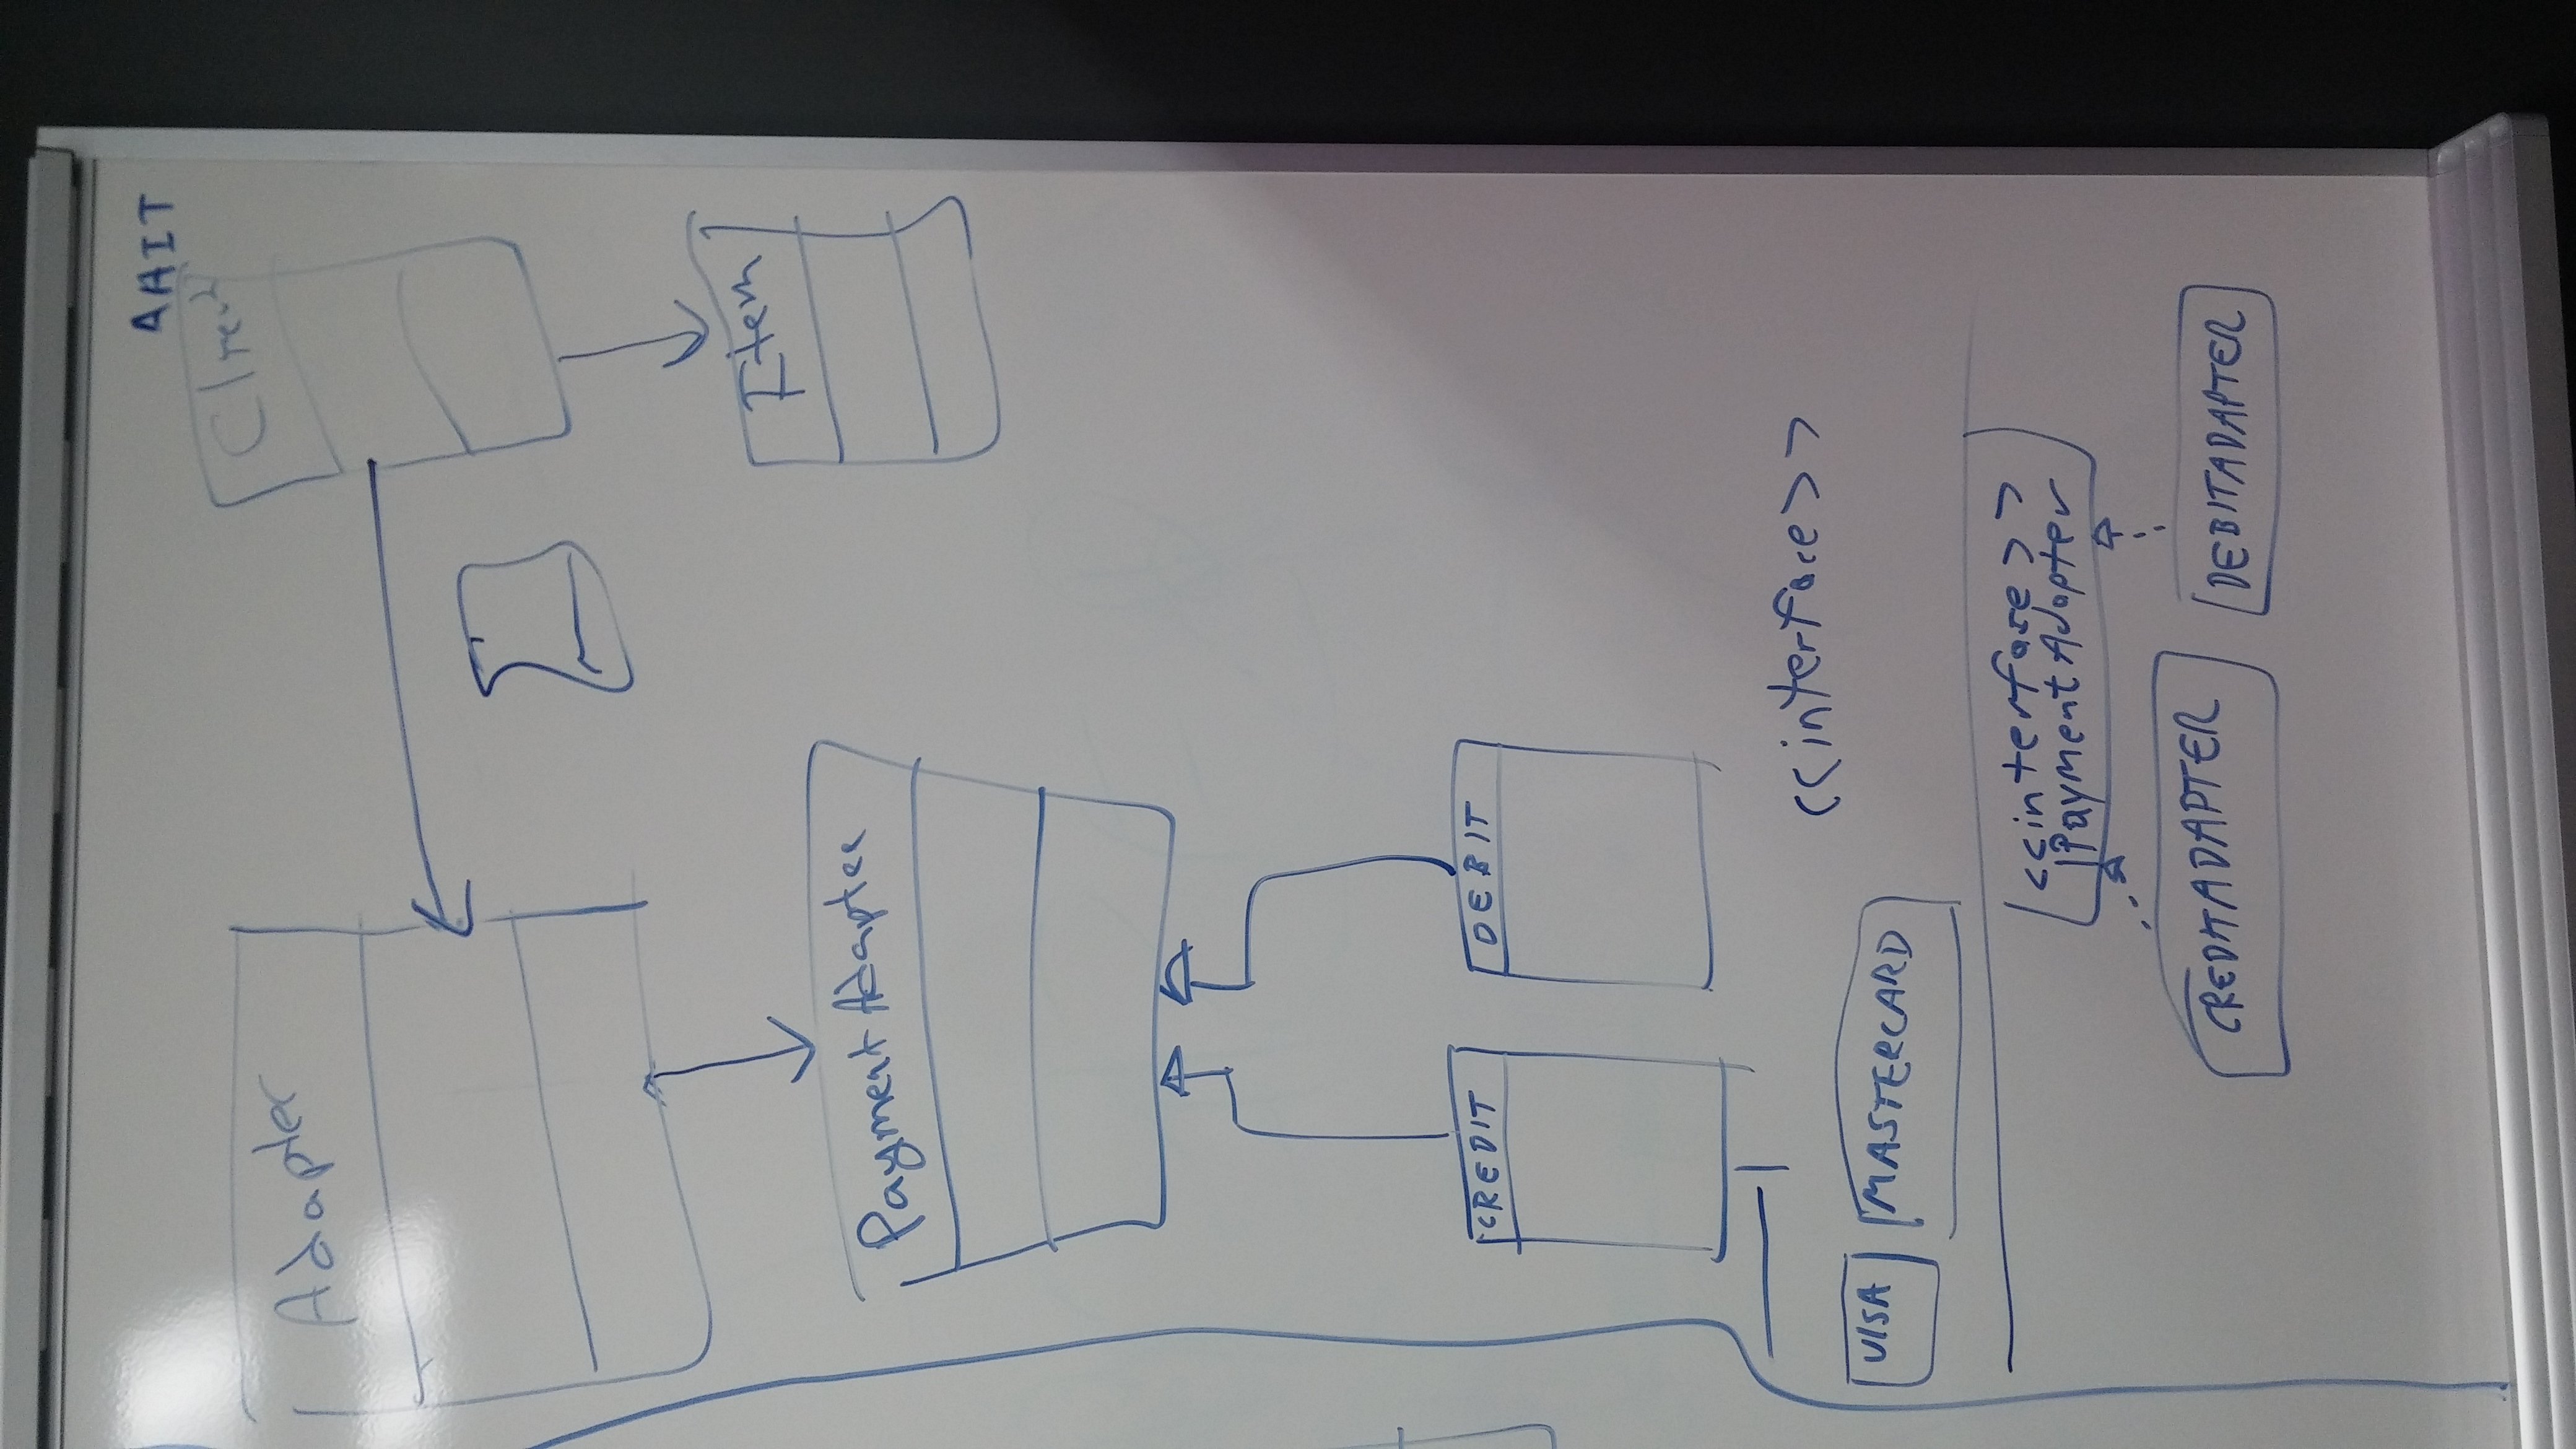 AHIT
Adapter
Client
Item
Payment Adapter
CREDIT
DEBIT
<<interface>>
VISA
MASTERCARD
<<interface>>
PaymentAdapter
CREDITADAPTER
DEBITADAPTER